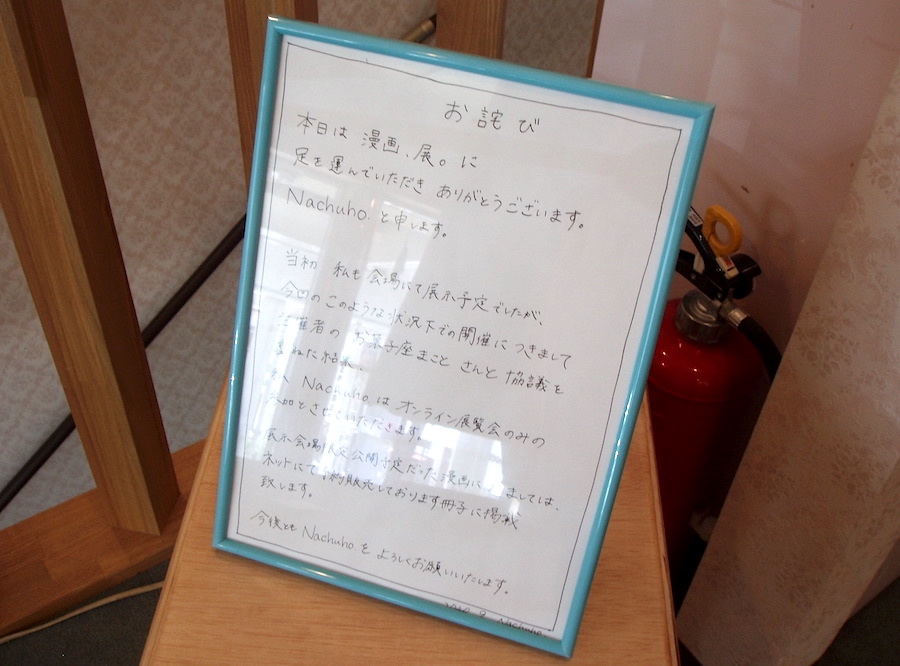 お詫び
本日は 漫画、展。に
足を運んでいただき ありがとうございます。
Nachuho. と申します。
当初 私も 会場にて展示予定でしたが、
今回の このような状況下での開催に つきまして
主催者の お菓子座まこと さんと 協議を
重ねた結果、
私、Nachuho は オンライン展覧会のみの
参加とさせていただきます。
展示会場限定公開予定だった漫画につきましては、
ネットにて予約販売しております冊子に掲載
致します。
今後とも Nachuho. を よろしくお願いいたします。
2020. 9 Nachuho.